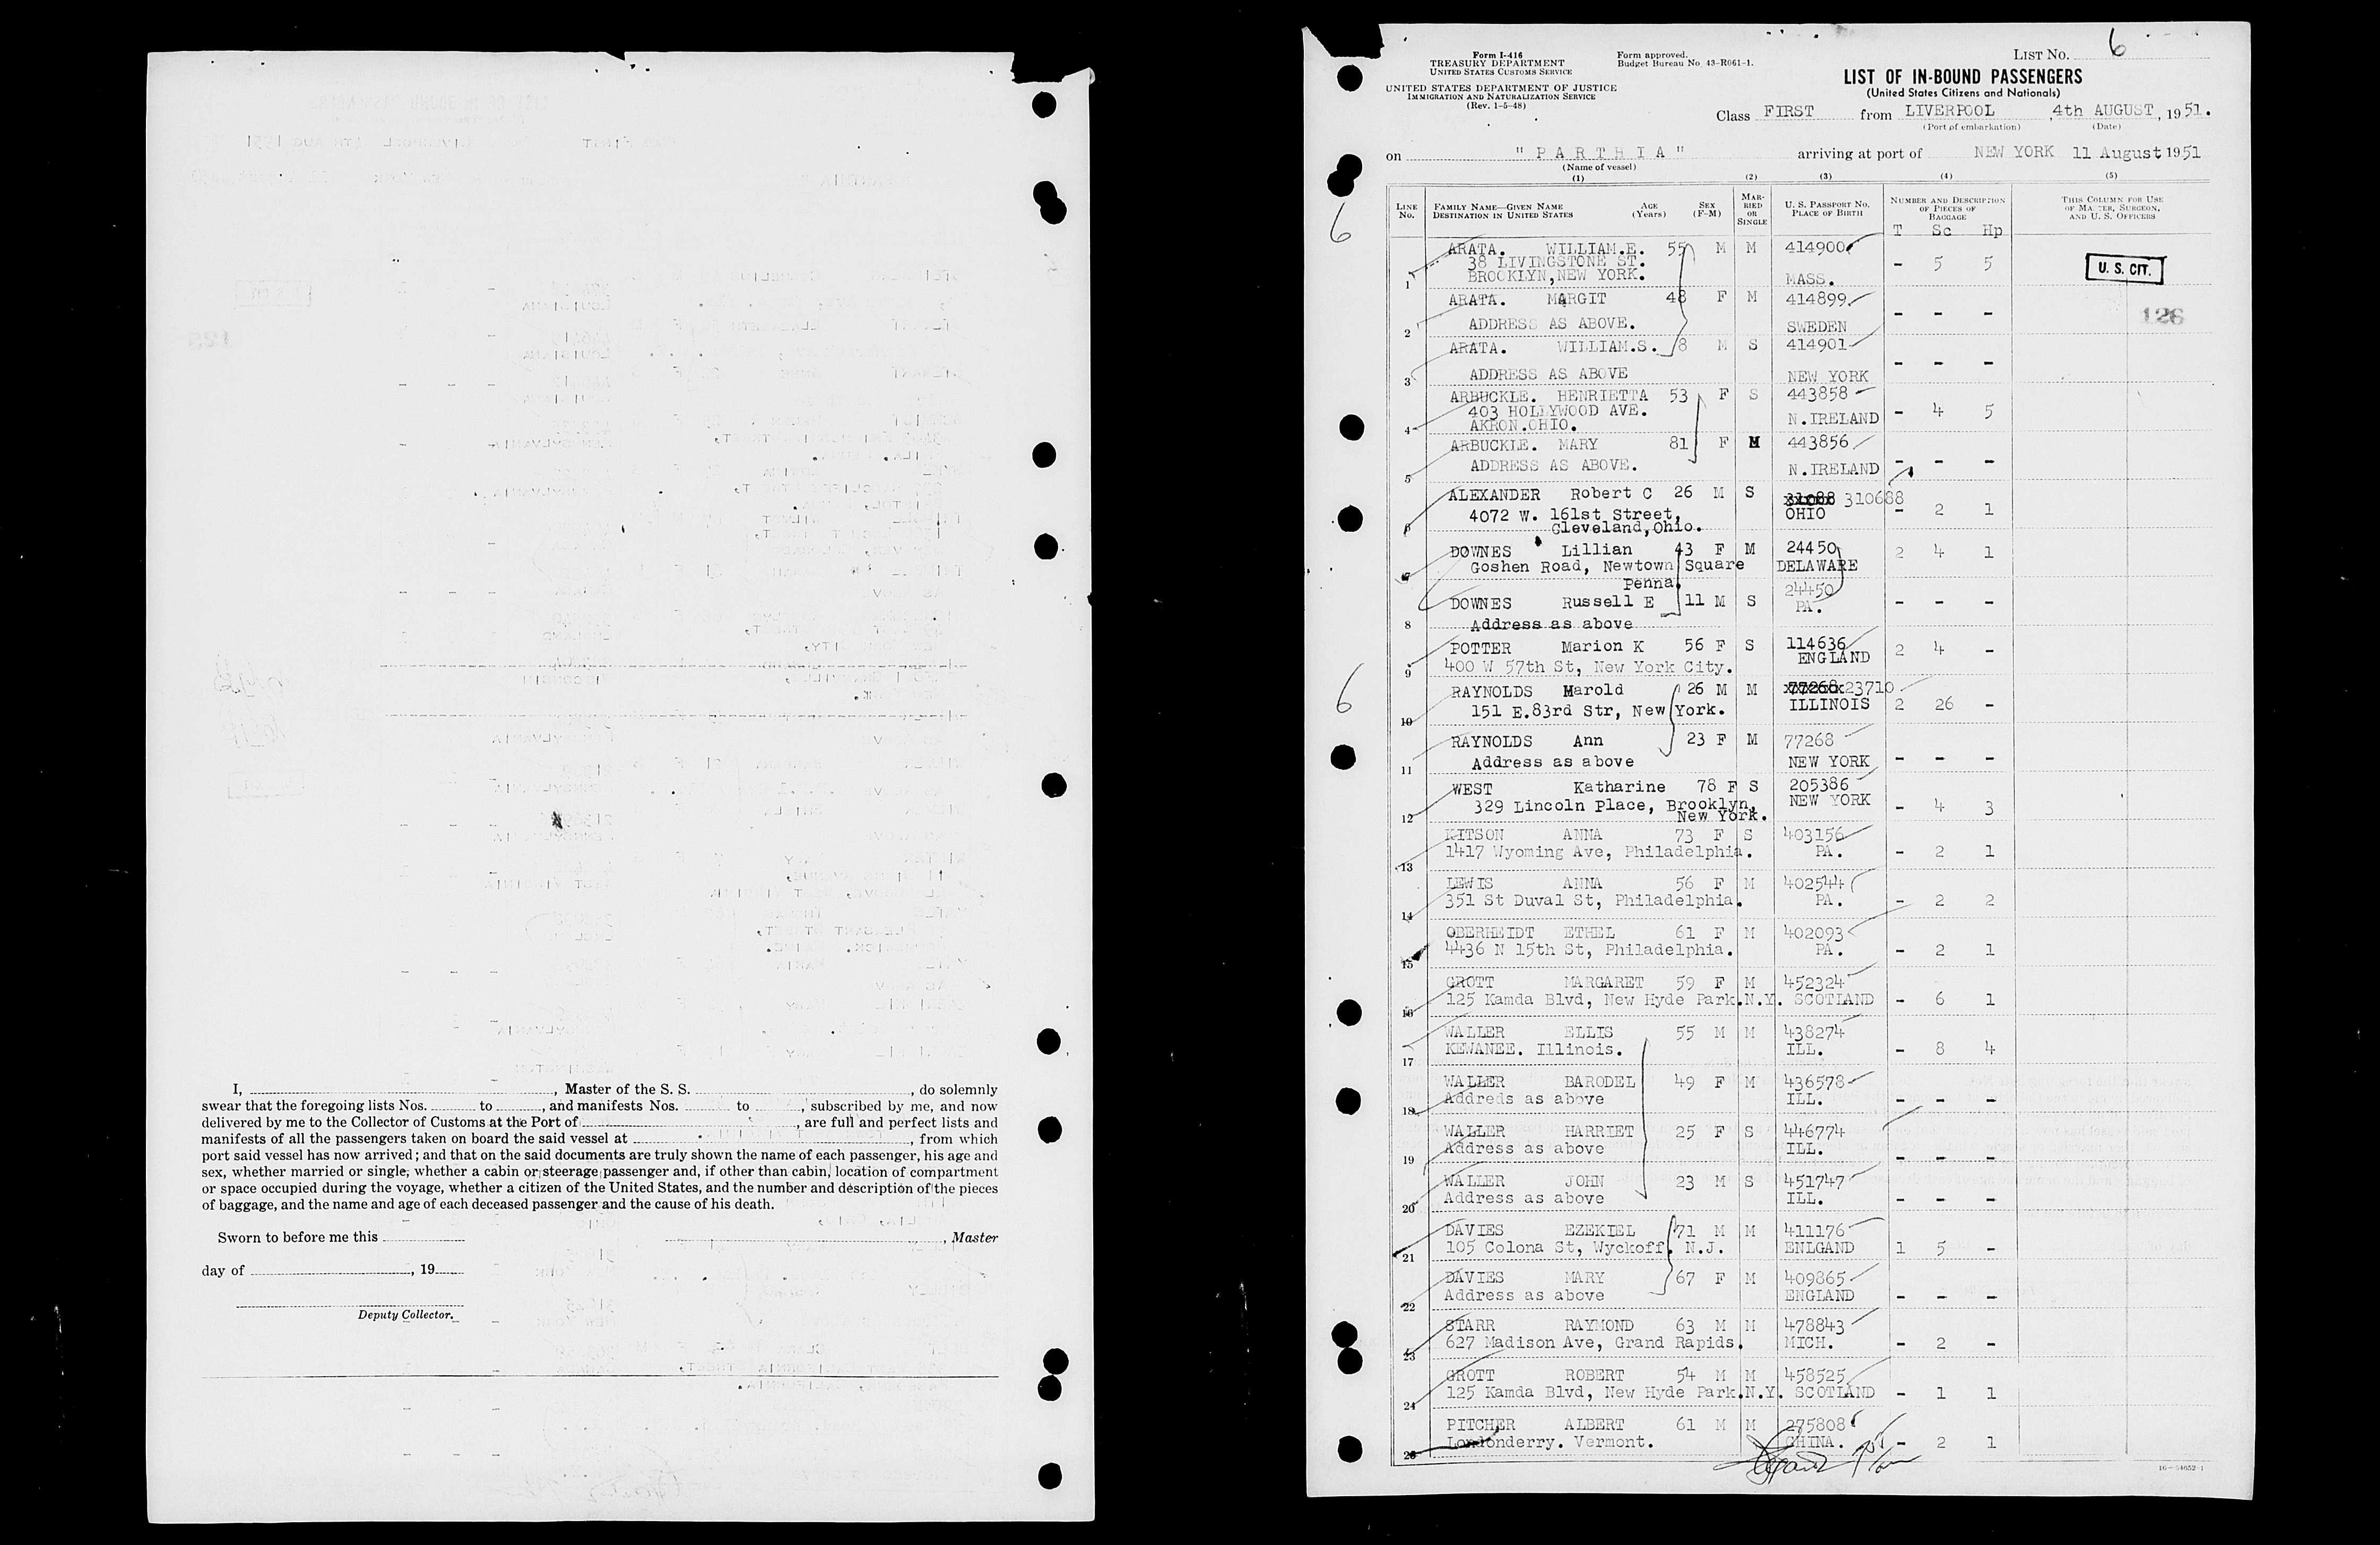 I, , Master of the S. S. , do solemnly
swear that the foregoing lists Nos. to , and manifests Nos. to , subscribed by me, and now
delivered by me to the Collector of Customs at the Port of , are full and perfect lists and
manifests of all the passengers taken on board the said vessel at , from which
port said vessel has now arrived; and that on the said documents are truly shown the name of each passenger, his age and
sex, whether married or single, whether a cabin or steerage passenger and, if other than cabin, location of compartment
or space occupied during the voyage, whether a citizen of the United States, and the number and description of the pieces
of baggage, and the name and age of each deceased passenger and the cause of his death.
Sworn to before me this , Master
day of , 19
Deputy Collector.
Form I-416
TREASURY DEPARTMENT
UNITED STATES CUSTOMS SERVICE
UNITED STATES DEPARTMENT OF JUSTICE
IMMIGRATION AND NATURALIZATION SERVICE
(Rev. 1-5-48)
Form approved.
Budget Bureau No. 43-R061-1.
LIST No. 6
LIST OF IN-BOUND PASSENGERS
(United States Citizens and Nationals)
Class FIRST from LIVERPOOL , 4th AUGUST, 1951.
(Port of embarkation) (Date)
on "PARTHIA" arriving at port of NEW YORK 11 August 1951
(Name of vessel)
(1) (2) (3) (4) (5)
LINE No. FAMILY NAME—GIVEN NAME DESTINATION IN UNITED STATES AGE (Years) SEX (F-M) MARRIED OR SINGLE U. S. PASSPORT NO. PLACE OF BIRTH NUMBER AND DESCRIPTION OF PIECES OF BAGGAGE THIS COLUMN FOR USE OF MASTER, SURGEON, AND U. S. OFFICERS
T Sc Hp
6
ARATA. WILLIAM.E. 55 M M 414900
38 LIVINGSTONE ST. - 5 5 U. S. CIT.
1 BROOKLYN, NEW YORK. MASS.
ARATA. MARGIT 48 F M 414899
- - - 126
2 ADDRESS AS ABOVE. SWEDEN
ARATA. WILLIAM.S. 8 M S 414901
- - -
3 ADDRESS AS ABOVE NEW YORK
ARBUCKLE. HENRIETTA 53 F S 443858
403 HOLLYWOOD AVE. N.IRELAND - 4 5
4 AKRON.OHIO.
ARBUCKLE. MARY 81 F M 443856
5 ADDRESS AS ABOVE. N.IRELAND - - -
ALEXANDER Robert C 26 M S 31088 310688
4072 W. 161st Street, OHIO - 2 1
6 Cleveland, Ohio.
DOWNES Lillian 43 F M 24450 2 4 1
Goshen Road, Newtown Square DELAWARE
7 Penna.
24450
DOWNES Russell E 11 M S PA. - - -
8 Address as above
POTTER Marion K 56 F S 114636 2 4 -
9 400 W 57th St, New York City. ENGLAND
6
RAYNOLDS Marold 26 M M 77268 23710
10 151 E.83rd Str, New York. ILLINOIS 2 26 -
RAYNOLDS Ann 23 F M 77268
11 Address as above NEW YORK - - -
WEST Katharine 78 F S 205386
329 Lincoln Place, Brooklyn, NEW YORK - 4 3
12 New York.
KITSON ANNA 73 F S 403156
13 1417 Wyoming Ave, Philadelphia. PA. - 2 1
LEWIS ANNA 56 F M 402544
14 351 St Duval St, Philadelphia. PA. - 2 2
OBERHEIDT ETHEL 61 F M 402093
15 4436 N 15th St, Philadelphia. PA. - 2 1
GROTT MARGARET 59 F M 452324
16 125 Kamda Blvd, New Hyde Park.N.Y. SCOTLAND - 6 1
WALLER ELLIS 55 M M 438274
17 KEWANEE. Illinois. ILL. - 8 4
WALLER BARODEL 49 F M 436578
18 Addreds as above ILL. - - -
WALLER HARRIET 25 F S 446774
19 Address as above ILL. - - -
WALLER JOHN 23 M S 451747
20 Address as above ILL. - - -
DAVIES EZEKIEL 71 M M 411176
21 105 Colona St, Wyckoff. N.J. ENLGAND 1 5 -
DAVIES MARY 67 F M 409865
22 Address as above ENGLAND - - -
STARR RAYMOND 63 M M 478843
23 627 Madison Ave, Grand Rapids. MICH. - 2 -
GROTT ROBERT 54 M M 458525
24 125 Kamda Blvd, New Hyde Park.N.Y. SCOTLAND - 1 1
PITCHER ALBERT 61 M M 275808
25 Londonderry. Vermont. CHINA. - 2 1
16—54652-1